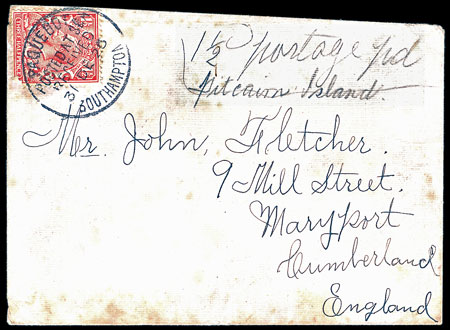 PAQUEBOT
POSTED AT SEA
SOUTHAMPTON
1½ postage pd
Pitcairn Island.
Mr. John, Fletcher.
9 Mill Street.
Maryport
Cumberland
England